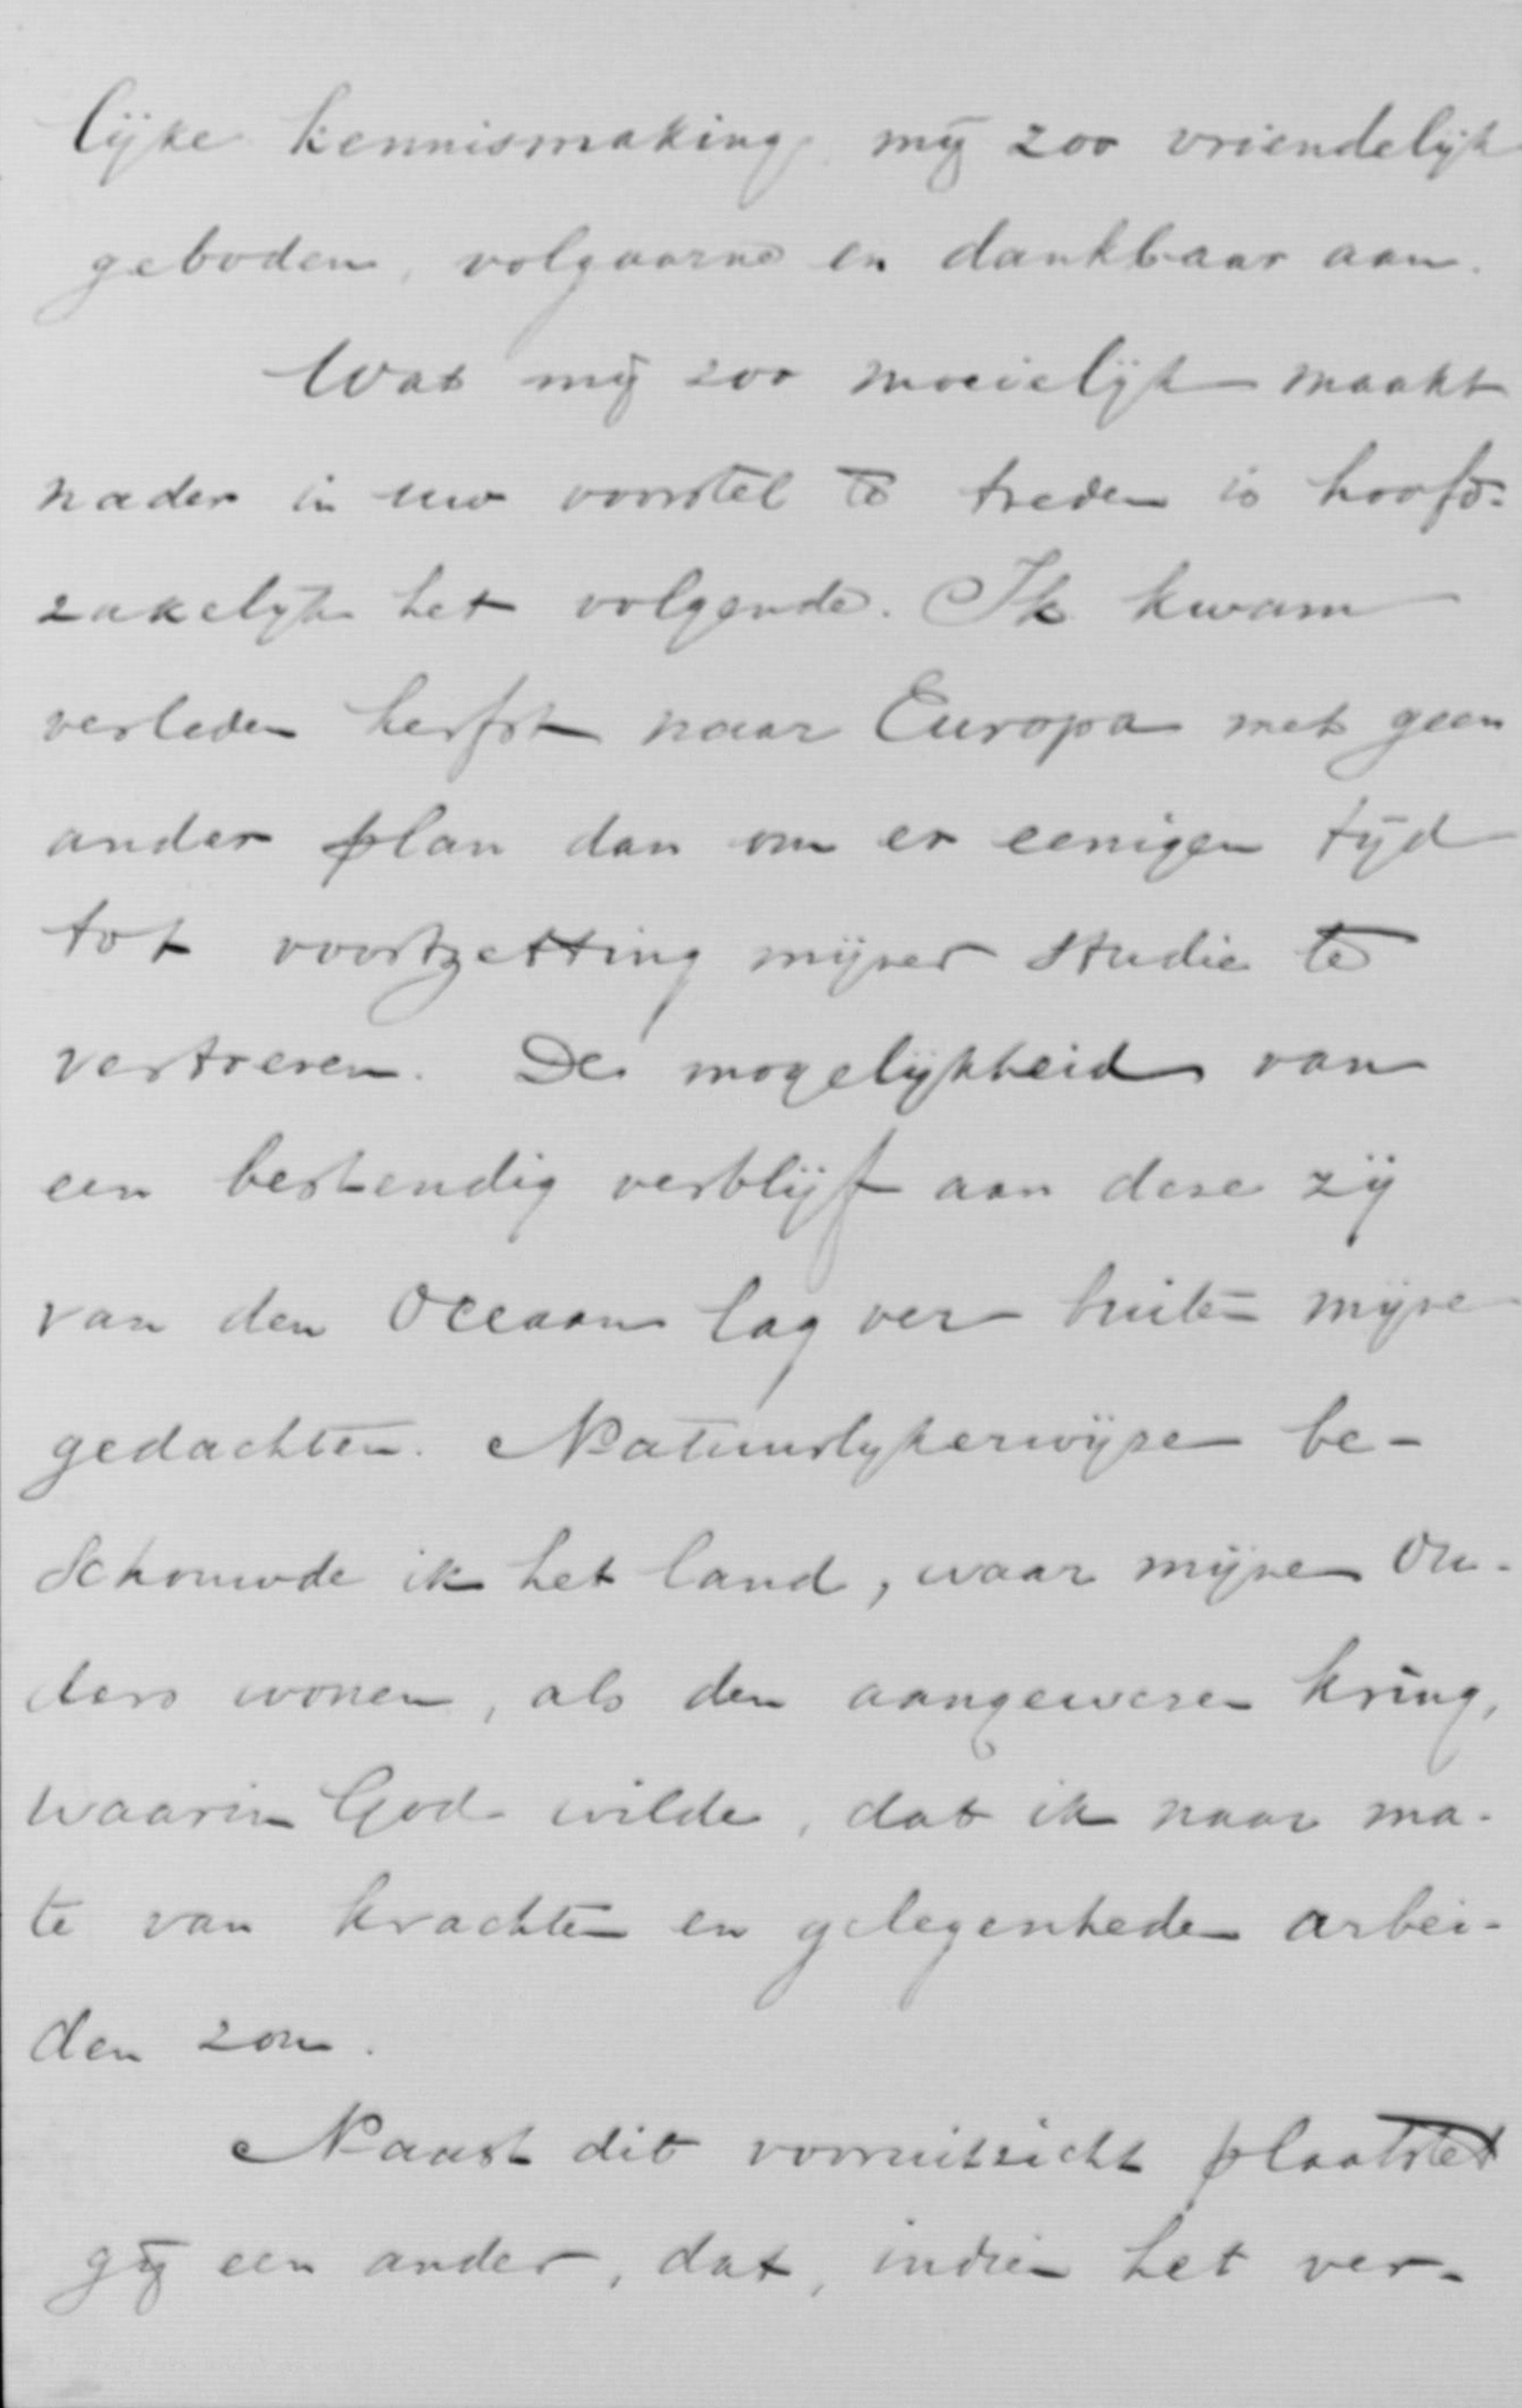 lijke kennismaking mij zoo vriendelijk
geboden, volgaarne en dankbaar aan.
Wat mij zoo moeielijk maakt
nader in uw voorstel te treden is hoofd-
zakelijk het volgende. Ik kwam
verleden herfst naar Europa met geen
ander plan dan om er eenigen tijd
tot voortzetting mijner studie te
vertoeven. De mogelijkheid van
een bestendig verblijf aan deze zij
van den Oceaan lag ver buiten mijne
gedachten. Natuurlijkerwijze be-
schouwde ik het land, waar mijne Ou-
ders wonen, als den aangewezen kring,
waarin God wilde, dat ik naar ma-
te van krachten en gelegenheden arbei-
den zou.
Naast dit vooruitzicht plaatstet
gij een ander, dat, indien het ver-